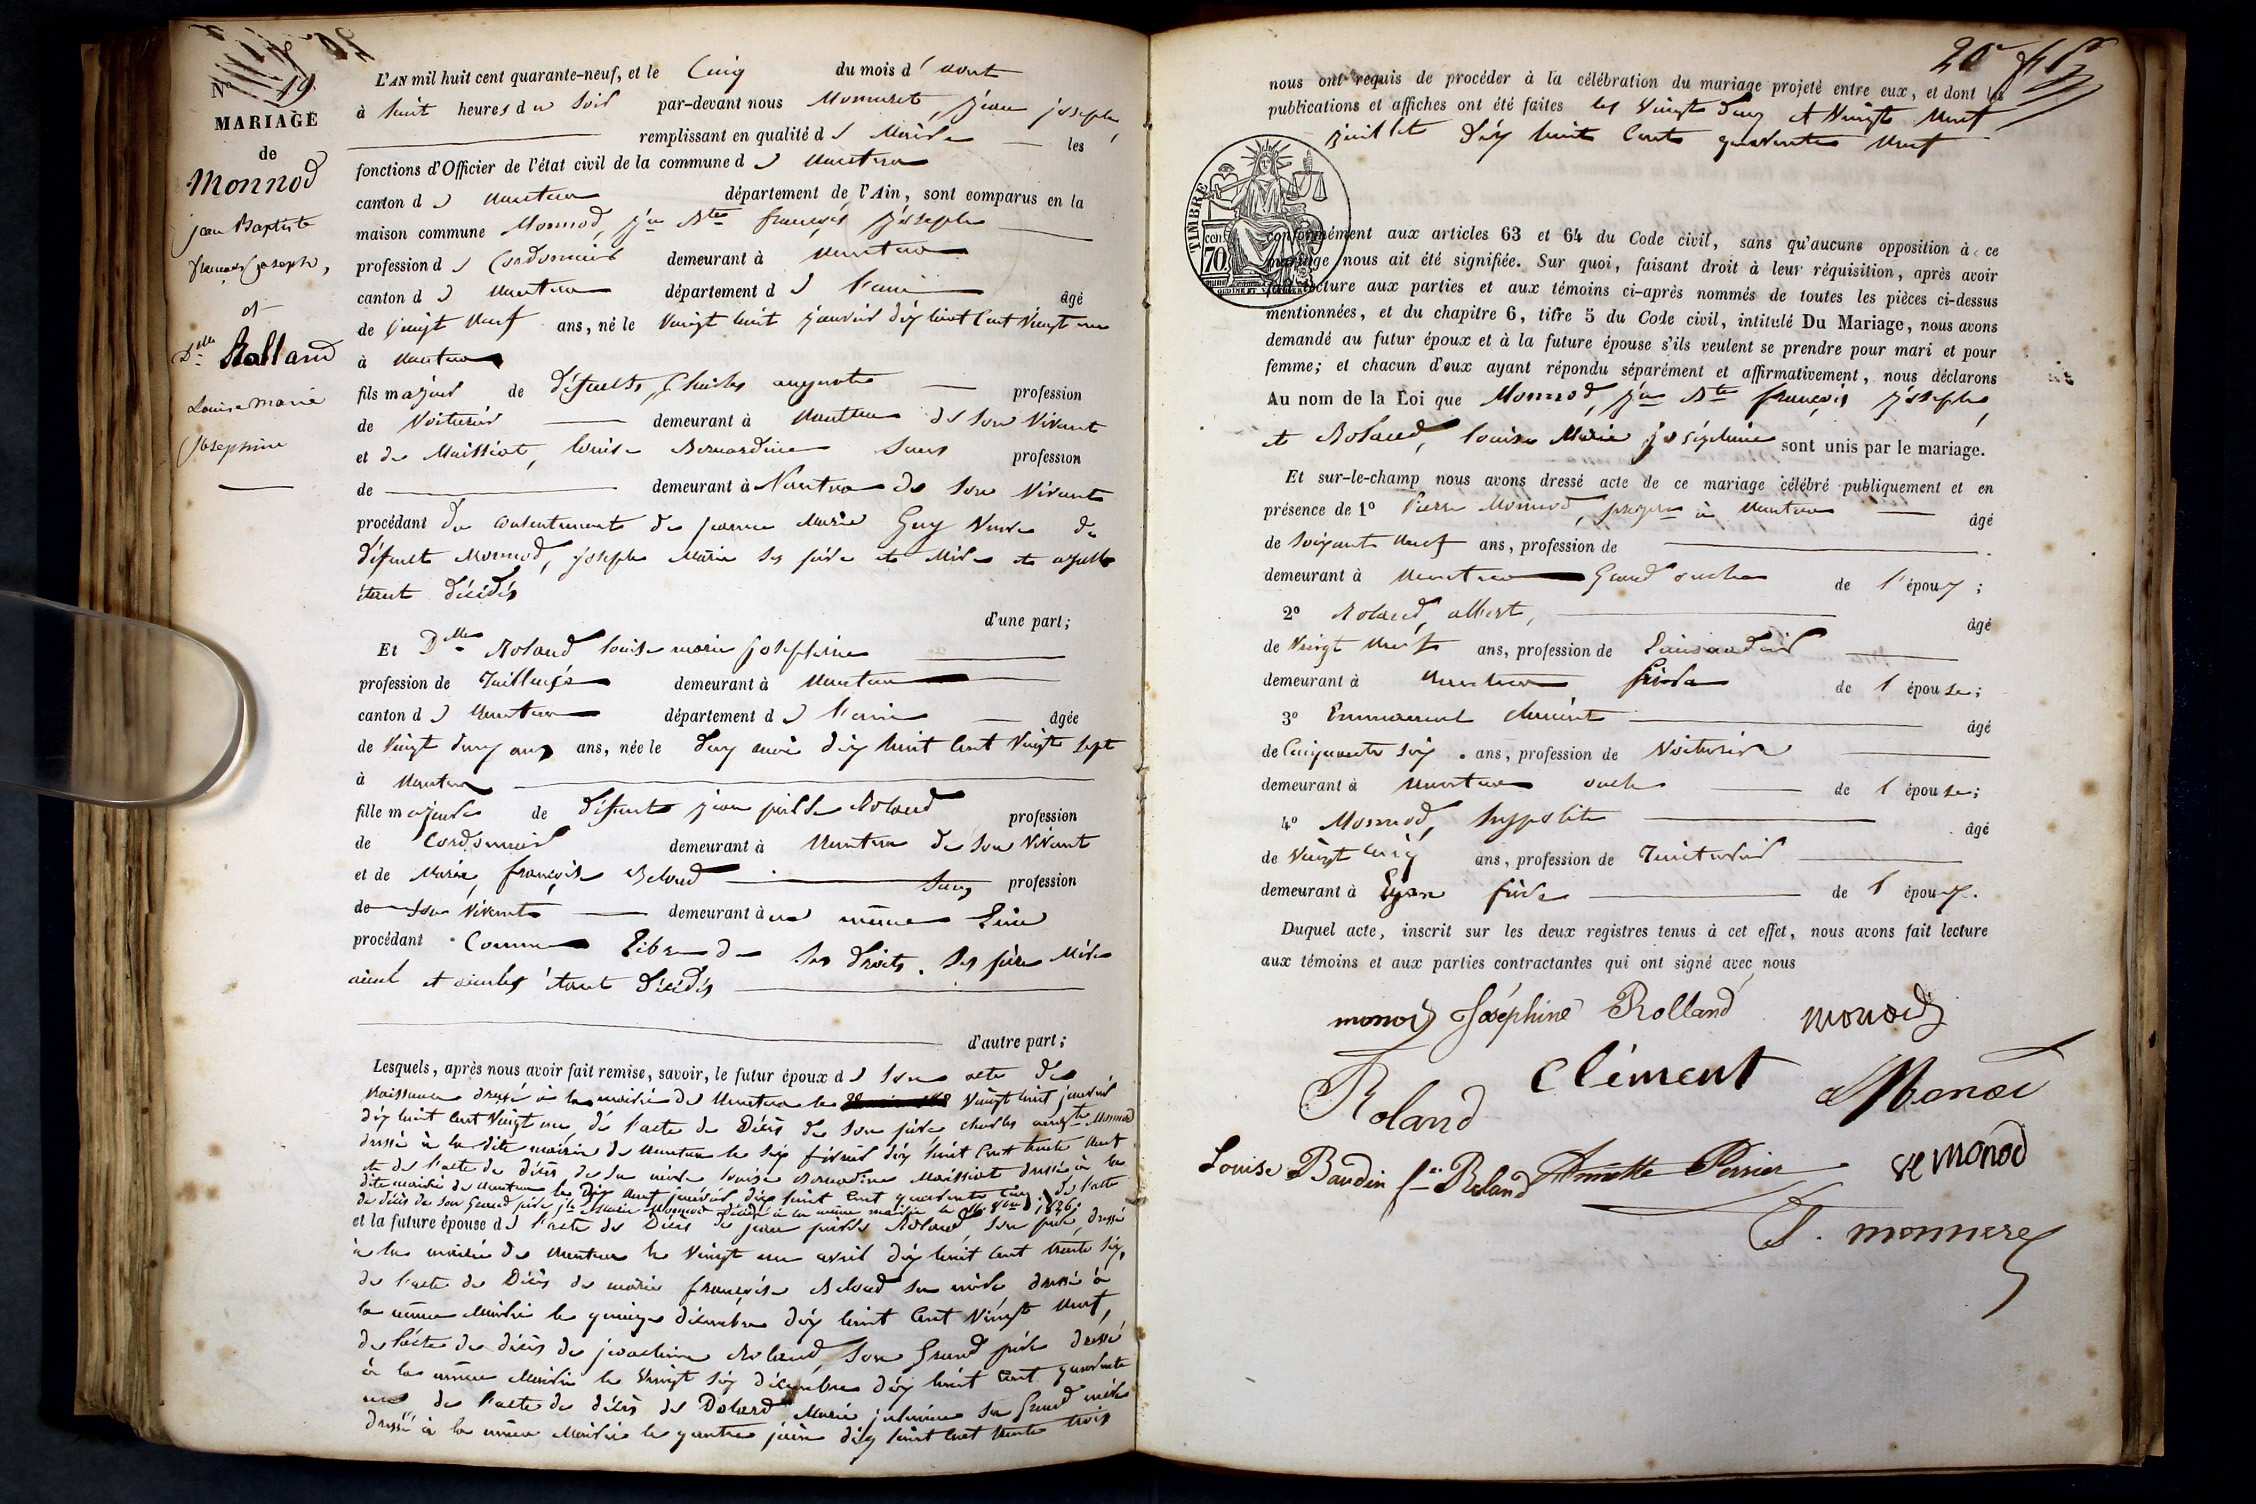 N° 19
MARIAGE
de
Monnod
jean Baptiste
françois joseph,
et
Dlle Rolland
Louise marie
Josephine
L'AN mil huit cent quarante-neuf, et le Cinq du mois d'aout
à huit heures du Soir par-devant nous Monneret, jean joseph
remplissant en qualité de Maire les
fonctions d'Officier de l'état civil de la commune de Nantua
canton de Nantua département de l'Ain, sont comparus en la
maison commune Monnod, jn Bte françois joseph
profession de Cordonnier demeurant à Nantua
canton de Nantua département de l'ain âgé
de vingt neuf ans, né le vingt huit janvier dix huit cent vingt un
à Nantua
fils majeur de défunts, Charles auguste profession
de Voiturier demeurant à Nantua de son vivant
et de Maissiat, louise Bernardine Sans profession
de demeurant à Nantua de son vivant
procédant du consentement de jeanne Marie Guy veuve de
défunt Monnod, joseph Marie ses père et Mère et
étant décédés
d'une part;
Et Dlle Roland louise marie josephine
profession de Tailleuse demeurant à Nantua
canton de Nantua département de l'ain âgée
de vingt deux ans ans, née le deux mai dix huit cent vingt sept
à Nantua
fille majeure de défunt jean Roland profession
de Cordonnier demeurant à Nantua de son vivant
et de Marie, françoise Beloud Sans profession
de son vivant demeurant à au même lieu
procédant Comme libre de ses droits. Ses père Mère
aieul et aieules étant décédés
d'autre part;
Lesquels, après nous avoir fait remise, savoir, le futur époux de son acte de
naissance dressé à la mairie de Nantua le vingt huit janvier
dix huit cent vingt un, de l'acte de Décès de son père charles augte Monnod
dressé à la dite mairie de Nantua le six février dix huit cent trente neuf
et de l'acte de décès de sa mère louise Bernardine Maissiat dressé à la
dite mairie de Nantua le dix neuf janvier dix huit cent quarante cinq, de l'acte
de décès de son Grand père jh Marie Monnod décédé à la même mairie le 1826.
et la future épouse de l'acte de Décès de jean Roland, son père, dressé
à la mairie de Nantua le vingt un avril dix huit cent trente six,
de l'acte de Décès de marie françoise Beloud sa mère dressé à
la même Mairie le quinze décembre dix huit cent vingt neuf,
de l'acte de décès de joachim Roland, son Grand père dressé
à la même Mairie le vingt six décembre dix huit cent quarante
un de l'acte de décès de Marie sa Grand mère
dressé à la même Mairie le quatre juin dix huit cent trente trois
20
nous ont requis de procéder à la célébration du mariage projeté entre eux, et dont les
publications et affiches ont été faites les vingt deux et vingt neuf
juillet dix huit cent quarante neuf
TIMBRE
70 cen
conformément aux articles 63 et 64 du Code civil, sans qu'aucune opposition à ce
mariage nous ait été signifiée. Sur quoi, faisant droit à leur réquisition, après avoir
lecture aux parties et aux témoins ci-après nommés de toutes les pièces ci-dessus
mentionnées, et du chapitre 6, titre 5 du Code civil, intitulé Du Mariage, nous avons
demandé au futur époux et à la future épouse s'ils veulent se prendre pour mari et pour
femme; et chacun d'eux ayant répondu séparément et affirmativement, nous déclarons
Au nom de la Loi que Monnod, jn Bte françois joseph,
et Roland, louise Marie joséphine sont unis par le mariage.
Et sur-le-champ nous avons dressé acte de ce mariage célébré publiquement et en
présence de 1° Pierre Monnod, à Nantua âgé
de soixante neuf ans, profession de
demeurant à Nantua Grand oncle de l'époux;
2° Roland, albert, âgé
de vingt neuf ans, profession de
demeurant à Nantua frère de l'épouse;
3° Emmanuel clément âgé
de Cinquante six ans, profession de Voiturier
demeurant à Nantua oncle de l'épouse;
4° Monnod, hypolite âgé
de vingt cinq ans, profession de Teinturier
demeurant à Lyon frère de l'époux.
Duquel acte, inscrit sur les deux registres tenus à cet effet, nous avons fait lecture
aux témoins et aux parties contractantes qui ont signé avec nous
monod Joséphine Rolland monod
Roland Clément Monod
Louise Baudin fe Roland Annette Perrier ve monod
J. monneret